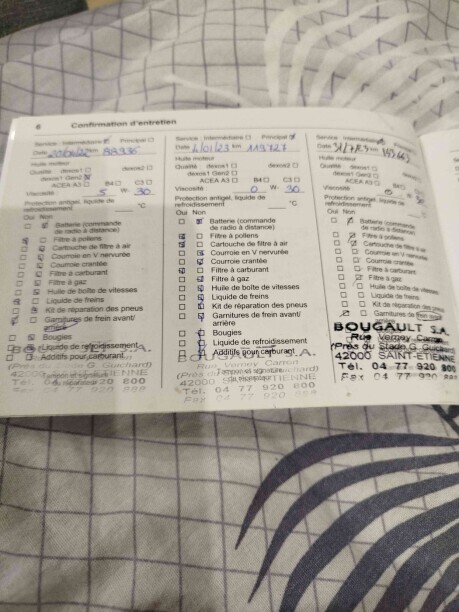 6 Confirmation d'entretien
Service : Intermédiaire Principal
Date 88996
Huile moteur
Qualité dexos1 dexos2
dexos1 Gen2
ACEA A3 B4 C3
Viscosité 5 W- 30
Protection antigel, liquide de
refroidissement °C
Oui Non
Batterie (commande
de radio à distance)
Filtre à pollens
Cartouche de filtre à air
Courroie en V nervurée
Courroie crantée
Filtre à carburant
Filtre à gaz
Huile de boîte de vitesses
Liquide de freins
Kit de réparation des pneus
Garnitures de frein avant/
arrière
Bougies
Liquide de refroidissement
Additifs pour carburant
(Près du Stade G. Guichard)
Tél. 04 77 920 800
Service : Intermédiaire Principal
Date 6/01/23 km 119727
Huile moteur
Qualité dexos1 dexos2
dexos1 Gen2
ACEA A3 B4 C3
Viscosité 0 W- 30
Protection antigel, liquide de
refroidissement °C
Oui Non
Batterie (commande
de radio à distance)
Filtre à pollens
Cartouche de filtre à air
Courroie en V nervurée
Courroie crantée
Filtre à carburant
Filtre à gaz
Huile de boîte de vitesses
Liquide de freins
Kit de réparation des pneus
Garnitures de frein avant/
arrière
Bougies
Liquide de refroidissement
Additifs pour carburant
Rue Verney Carron
Tampon et signature
42000 SAINT-ETIENNE
Tél. 04 77 920 800
Fax 04 77 920
Service : Intermédiaire Principal
Date km
Huile moteur
Qualité dexos1 dexos2
dexos1 Gen2
ACEA A3 B4 C3
Viscosité 0 W-
Protection antigel, liquide de
refroidissement °C
Oui Non
Batterie (commande
de radio à distance)
Filtre à pollens
Cartouche de filtre à air
Courroie en V nervurée
Courroie crantée
Filtre à carburant
Filtre à gaz
Huile de boîte de vitesses
Liquide de freins
Kit de réparation des pneus
Garnitures de frein avant/
BOUGAULT S.A.
Rue Verney Carron
(Près du Stade G. Guichard)
42000 SAINT-ETIENNE
Tél. 04 77 920 800
Fax 04 77 920